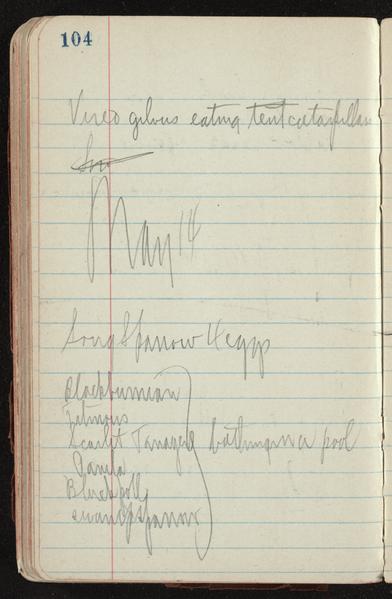 104
Vireo gilvus eating tent caterpillar
May 14
Song Sparrow 4 eggs
Blackburnian
Scarlet Tanager bathing in a pool
Parula
Blackpoll
Swamp Sparrow